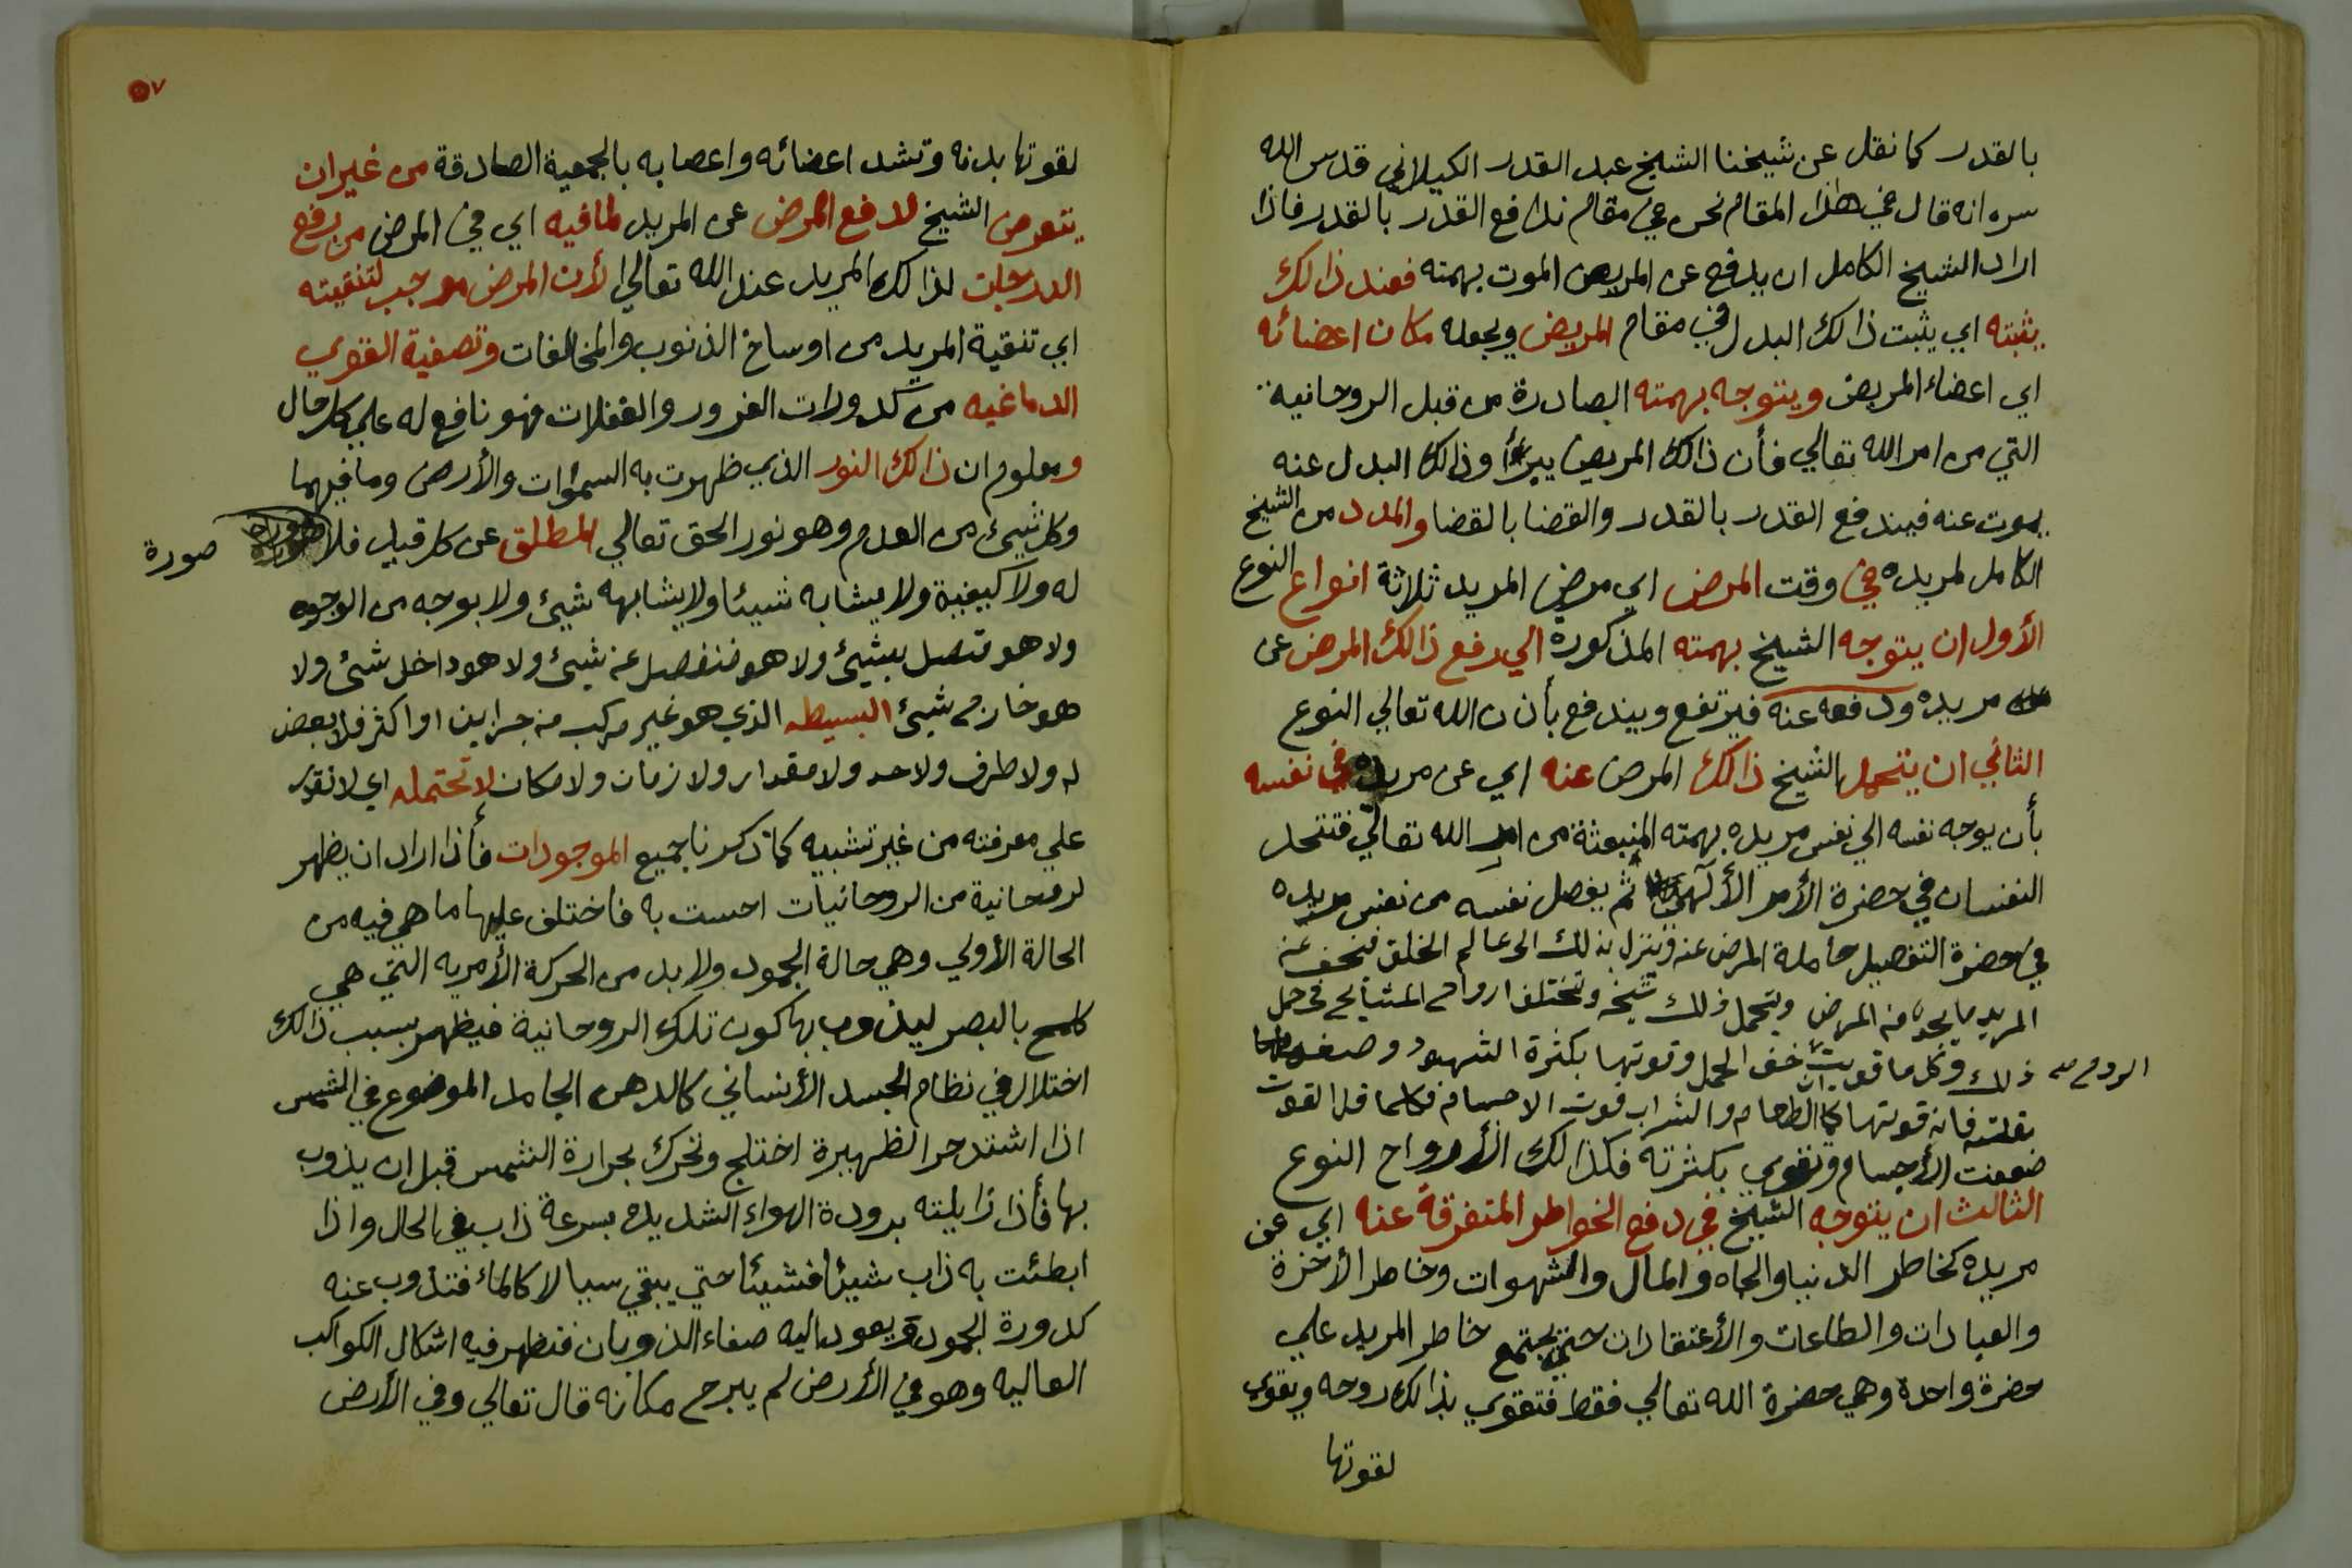 بالقدر كما نقل عن شيخنا الشيخ عبد القدر الكيلاني قدس الله
سره انه قال في هذا المقام نحن في مقام ندافع القدر بالقدر فاذا
اراد الشيخ الكامل ان يدفع عن المريض الموت بهمته فعند ذالك
يثبته اي يثبت ذالك البدل في مقام المريض ويجعله مكان اعضائه
اي اعضاء المريض ويتوجه بهمته الصادرة من قبل الروحانية
التي من امر الله تعالي فأن ذالك المريض يبرأ وذالك البدل عنه
يموت عنه فيندفع القدر بالقدر والقضا بالقضا والمدد من الشيخ
الكامل لمريده في وقت المرض اي مرض المريد ثلاثة انواع النوع
الأول ان يتوجه الشيخ بهمته المذكورة الي دفع ذالك المرض عن
مريده ودفعه عنه فيرتفع ويندفع بأذن الله تعالي النوع
الثاني ان يتحمل الشيخ ذالك المرض عنه اي عن مريده في نفسه
بأن يوجه نفسه الي نفس مريده بهمته المنبعثة من امر الله تعالي فتتحد
النفسان في حضرة الأمر الألهي ثم يفصل نفسه من نفس مريده
في حضرة التفصيل حاملة المرض عنه وينزل بذلك الى عالم الخلق فيخف عنه
المريد ما يجده من المرض ويتحمل ذلك شيخه وتختلف ارواح المشايخ في حمل
ذلك وكل ما قويت خف الحمل وقوتها بكثرة الشهود وضعفها
الروح صح
بقلته فانه قوتها كما ان الطعام والشراب قوت الاجسام فكلما قل القوت
ضعفت الأجسام وتقوي بكثرته فكذالك الأرواح النوع
الثالث ان يتوجه الشيخ في دفع الخواطر المتفرقة عنه اي عن
مريده كخاطر الدنيا والجاه والمال والشهوات وخاطر الأخرة
والعبادات والطاعات والأعتقادات حتي يجتمع خاطر المريد علي
حضرة واحدة وهي حضرة الله تعالي فقط فتقوي بذالك روحه ويقوي
لقوتها
٧
لقوتها بدنه وتشد اعضائه واعصابه بالجمعية الصادقة من غير ان
يتعرض الشيخ لدفع المرض عن المريد لما فيه اي في المرض من رفع
الدرجات لذالك المريد عند الله تعالي لأن المرض موجب لتنقيته
اي تنقية المريد من اوساخ الذنوب والمخالفات وتصفية القوي
الدماغيه من كدورات الغرور والغفلات فهو نافع له علي كل حال
ومعلوم ان ذالك النور الذي ظهرت به السموات والأرض وما فيهما
وكل شيئ من العدم وهو نور الحق تعالي المطلق عن كل قيد فلا
صورة
له ولا كيفية ولا يشابه شيئا ولا يشابهه شيئ ولا بوجه من الوجوه
ولا هو متصل بشيئ ولا هو منفصل عن شيئ ولا هو داخل شئ ولا
هو خارج شيئ البسيط الذي هو غير مركب من جزاين او اكثر فلا بعض
له ولا طرف ولا حد ولا مقدار ولا زمان ولا مكان لا تحتمله اي لا تقدر
علي معرفته من غير تشبيه كما ذكرنا جميع الموجودات فأذا اراد ان يظهر
لروحانية من الروحانيات احست به فاختلف عليها ما هي فيه من
الحالة الأولي وهي حالة الجمود ولا بد من الحركة الأمريه التي هي
كلمح بالبصر ليذوب بها كون تلك الروحانية فيظهر بسبب ذالك
اختلال في نظام الجسد الأنساني كالدهن الجامد الموضوع في الشمس
اذا اشتد حر الظهيرة اختلج وتحرك بحرارة الشمس قبل ان يذوب
بها فأذا زايلته برودة الهواء الشديده بسرعة ذاب في الحال واذا
ابطئت به ذاب شيئا فشيئا حتي يبقي سيالا كالماء فتذوب عنه
كدورة الجمود ويعود اليه صفاء الذوبان فتظهر فيه اشكال الكواكب
العاليه وهو في الأرض لم يبرح مكانه قال تعالي وفي الأرض